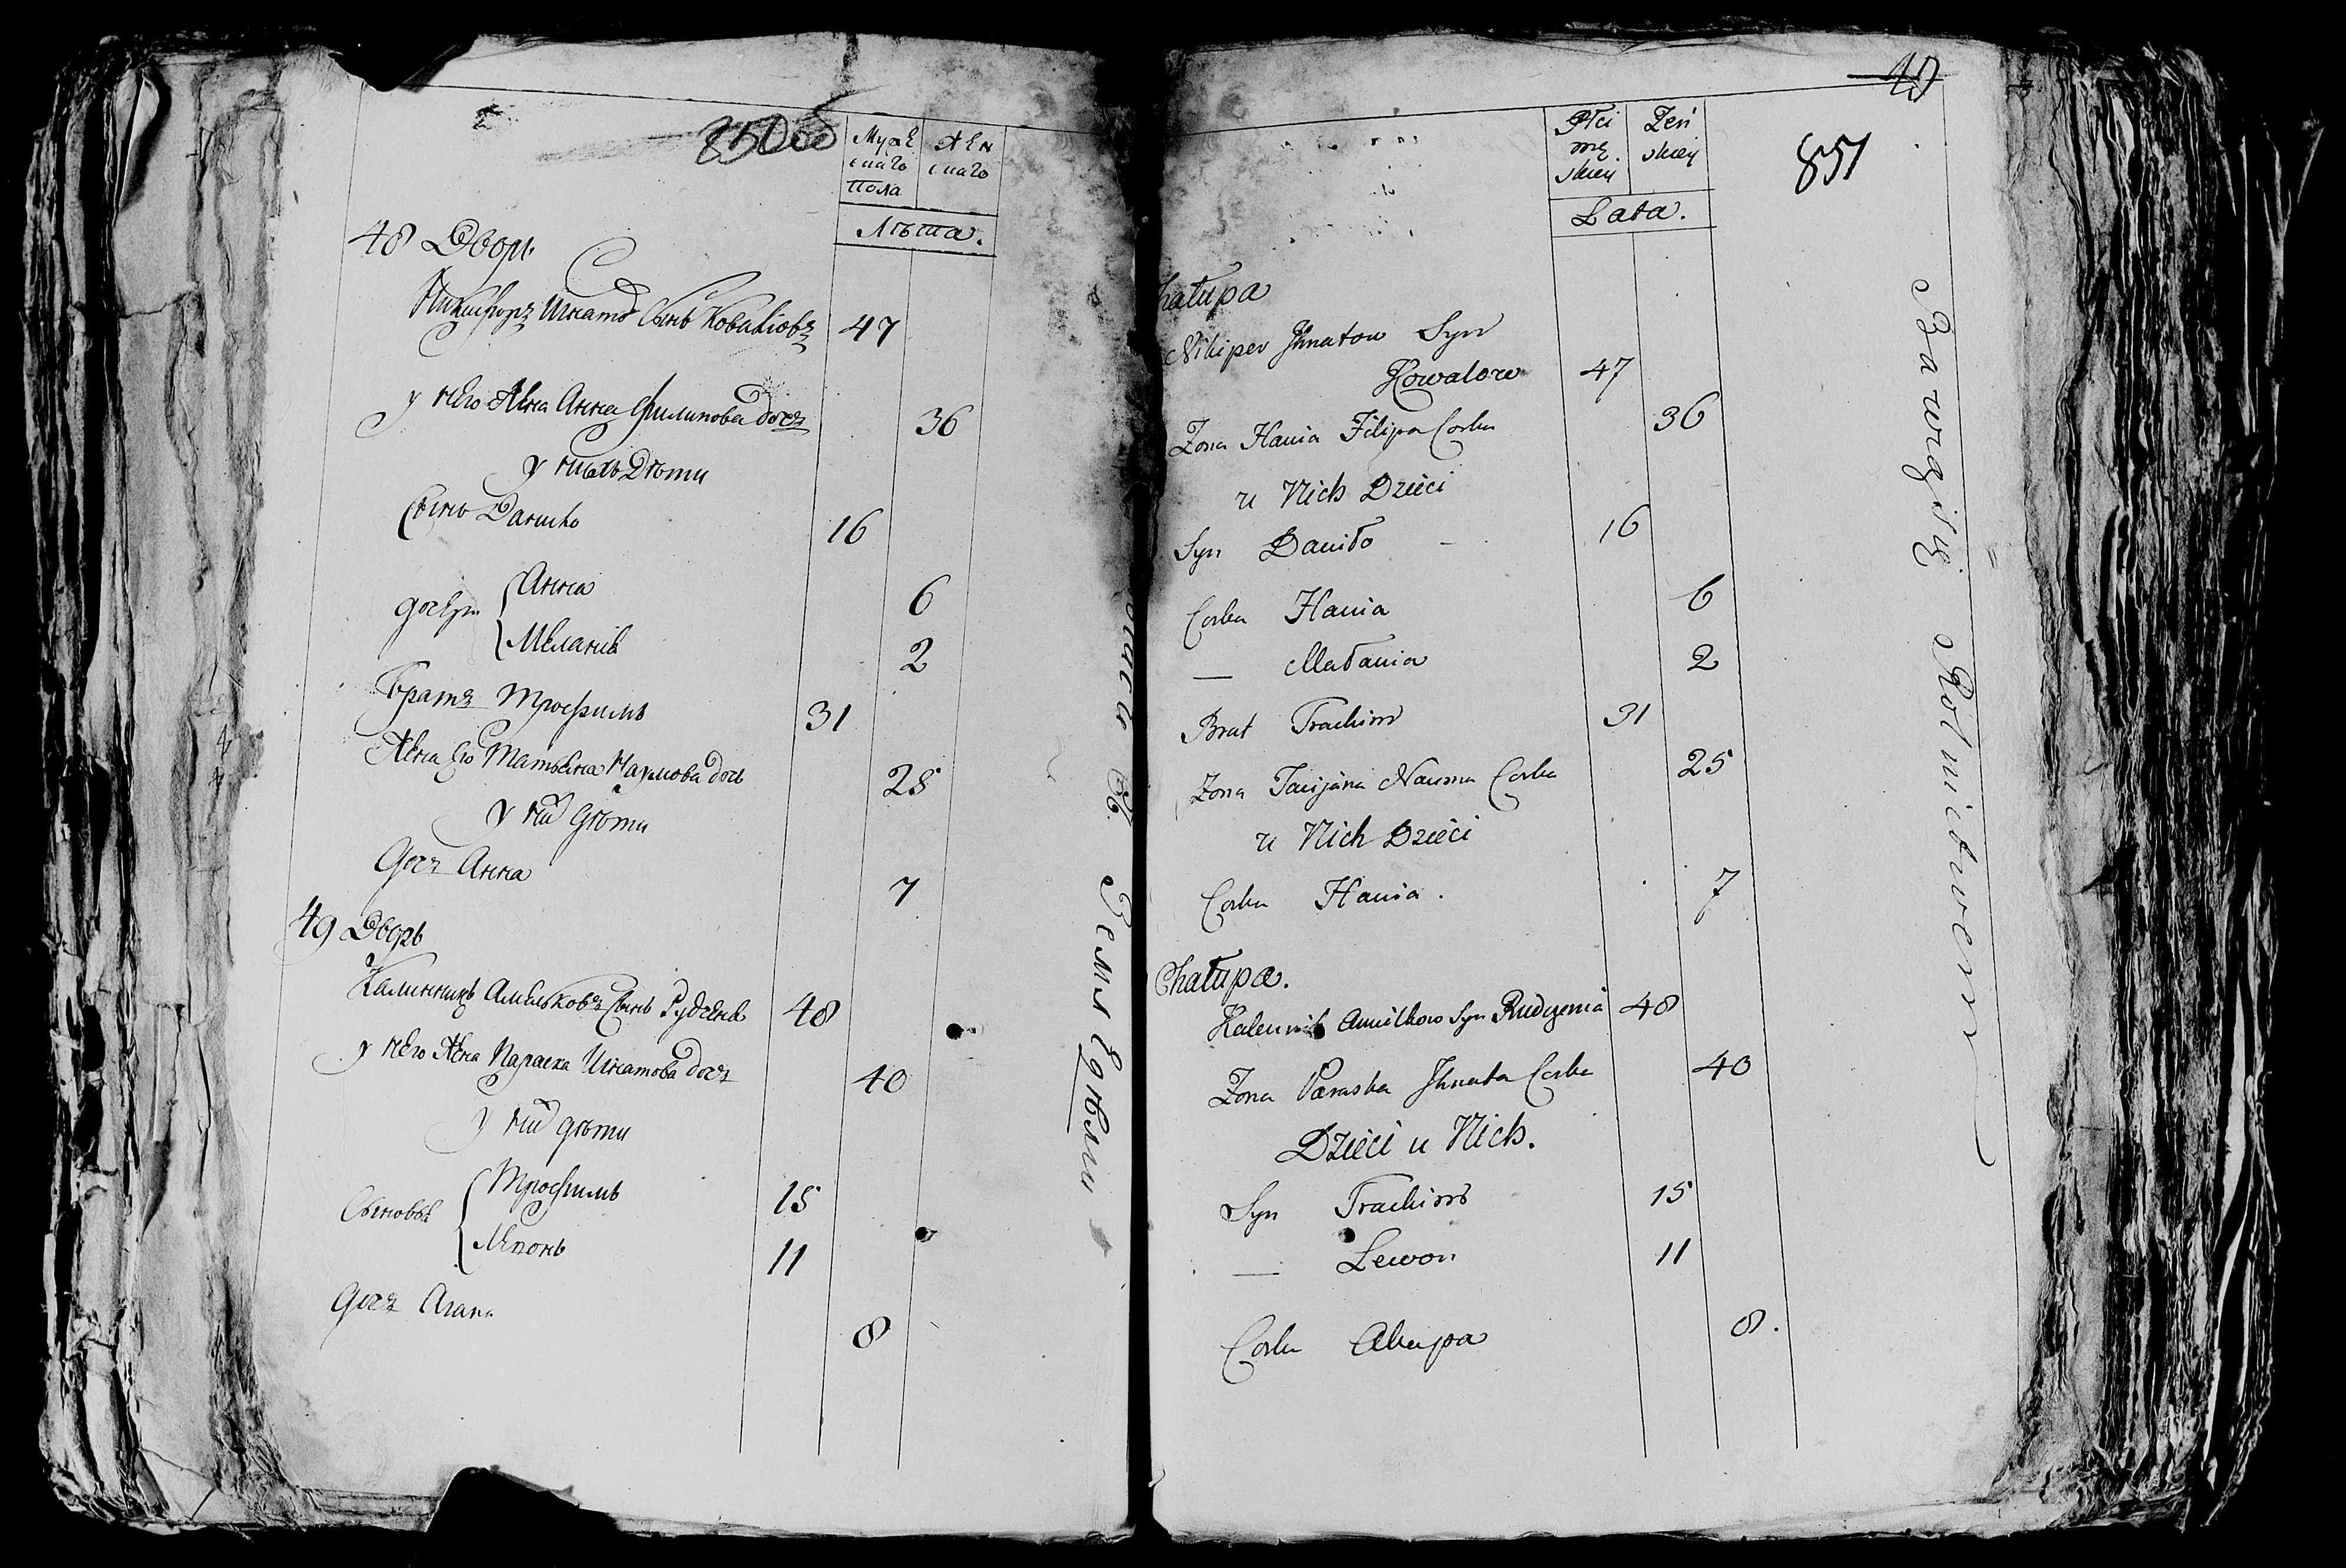 850об
Муже
скаго
пола
жен
скаго
Лѣта.
48 Дворъ
Никифоръ Игнатов Сынъ Ковалiовъ 47
у него жена Анна Филипова дочъ 36
у нихъ Дѣти
Сынъ Данило 16
дочери Анна 6
Меланiя 2
Братъ Трофимъ 31
Жена Его Татьяна Наумова дочь 25
у них дѣти
Дочъ Анна 7
49 Дворъ
Калинникъ Амельковъ Сынъ Рудченя 48
у него жена Параска Игнатова дочъ 40
у них дѣти
Сыновья Трофимъ 15
Левонъ 11
Дочъ Агапа 8
851
Płci
mę
skiey
Żeń
skiey
Lata.
hałupa
Nikiper Ihnatow Syn
Kowalow 47
Zona Hania Filipa Corka 36
u Nich Dzieci
Syn Daniło 16
Corka Hania 6
— Małania 2
Brat Trachim 31
Zona Taćjana Nauma Corka 25
u Nich Dzieci
Corka Hania. 7
Chałupa.
Kalennik Amielkow Syn Rudczenia 48
Zona Paraska Ihnata Corka 40
Dzieci u Nich.
Syn Trachim 15
— Lewon 11
Corka Ahapa 8.
Rotmistrz